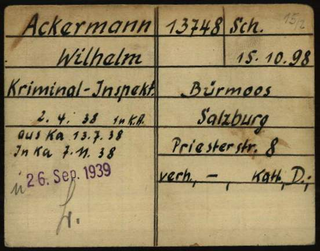 Ackermann 13748 Sch.
Wilhelm 15.10.98
Kriminal-Inspekt. Bürmoos
2. 4. 38 in KA. Salzburg
aus Ka 13.7.38 Priesterstr. 8
In Ka 7.11.38
verh, -, Kath, D.;
26. Sep. 1939